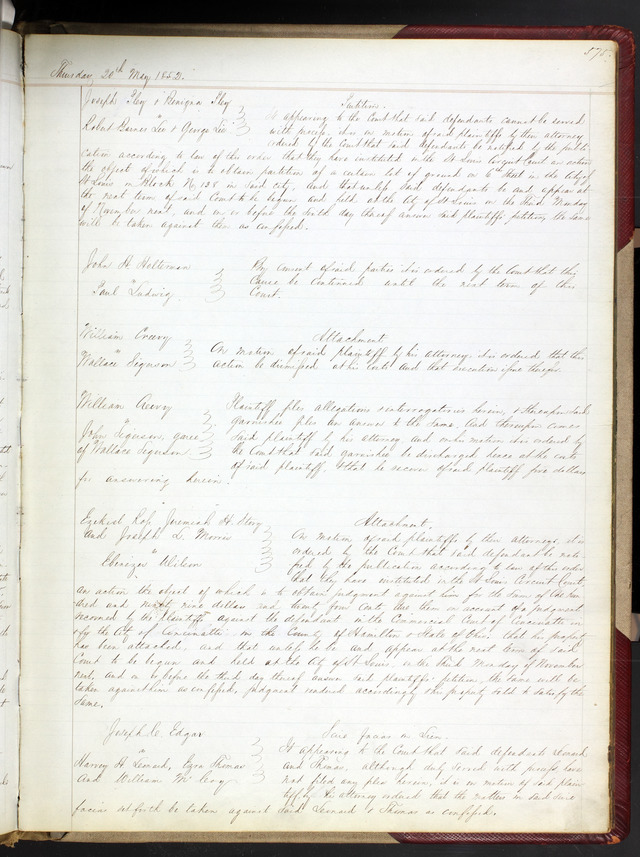 575.
Thursday, 20th May 1852.
Joseph Sley & Benigna Sley
vs
Robert Barnes Lee & George Lee
Petition.
It appearing to the Court that said defendants cannot be served
with process, it is on motion of said plaintiffs by their attorney
ordered by the Court that said defendants be notified by the publi
cation according to law of this order that they have instituted in the St Louis Circuit Court an action
the object of which is to obtain partition of a certain lot of ground on 6th Street in the City of
St Louis in Block No 128 in said city, and that unless said defendants be and appear at
the next term of said Court to be begun and held at the City of St Louis on the third Monday
of November next, and on or before the sixth day thereof answer said plaintiffs petition, the same
will be taken against them as confessed.
John H Helterman
vs
Paul Ludwig
By consent of said parties it is ordered by the Court that this
Cause be continued until the next term of this
Court.
William Creevy
vs
Wallace Sigerson
Attachment
On motion of said plaintiff by his attorney, it is ordered that this
action be dismissed at his costs and that execution issue therefor.
William Creevy
vs
John Sigerson, garnee
of Wallace Sigerson
Plaintiff files allegations & interrogatories herein, & thereupon said
garnishee files an answer to the same. And thereupon comes
said plaintiff by his attorney and on his motion it is ordered by
the Court that said garnishee be discharged hence at the costs
of said plaintiff & that he recover of said plaintiff five dollars
for answering herein.
Ezekiel Ross, Jeremiah H. Story
and Joseph L. Morris
vs
Ebenezer Wilson
Attachment.
On motion of said plaintiffs by their attorneys, it is
ordered by the Court that said defendant be noti
fied by the publication according to law of this order
that they have instituted in the St Louis Circuit Court,
an action the object of which is to obtain judgment against him for the sum of One hun
dred and ninety nine dollars and twenty four cents due them on account of a judgment
recovered by the plaintiffs against the defendant in the Commercial Court of Cincinnati in
& for the City of Cincinnatti in the County of Hamilton & State of Ohio that his property
has been attached, and that unless he be and appear at the next term of said
Court to be begun and held at the City of St Louis, on the third Monday of November
next, and on or before the third day thereof answer said plaintiffs petition, the same will be
taken against him as confessed, judgment rendered accordingly & his property sold to satisfy the
same.
Joseph C. Edgar
vs
Harvey H Lennard, Ezra Thomas
and William Mc Cevy
Scire facias on Lien.
It appearing to the Court that said defendants Lennard
and Thomas, although duly served with process have
not filed any plea herein, it is on motion of said plain
tiff by his attorney ordered that the matters in said Scire
facias set forth be taken against said Lennard & Thomas as confessed.